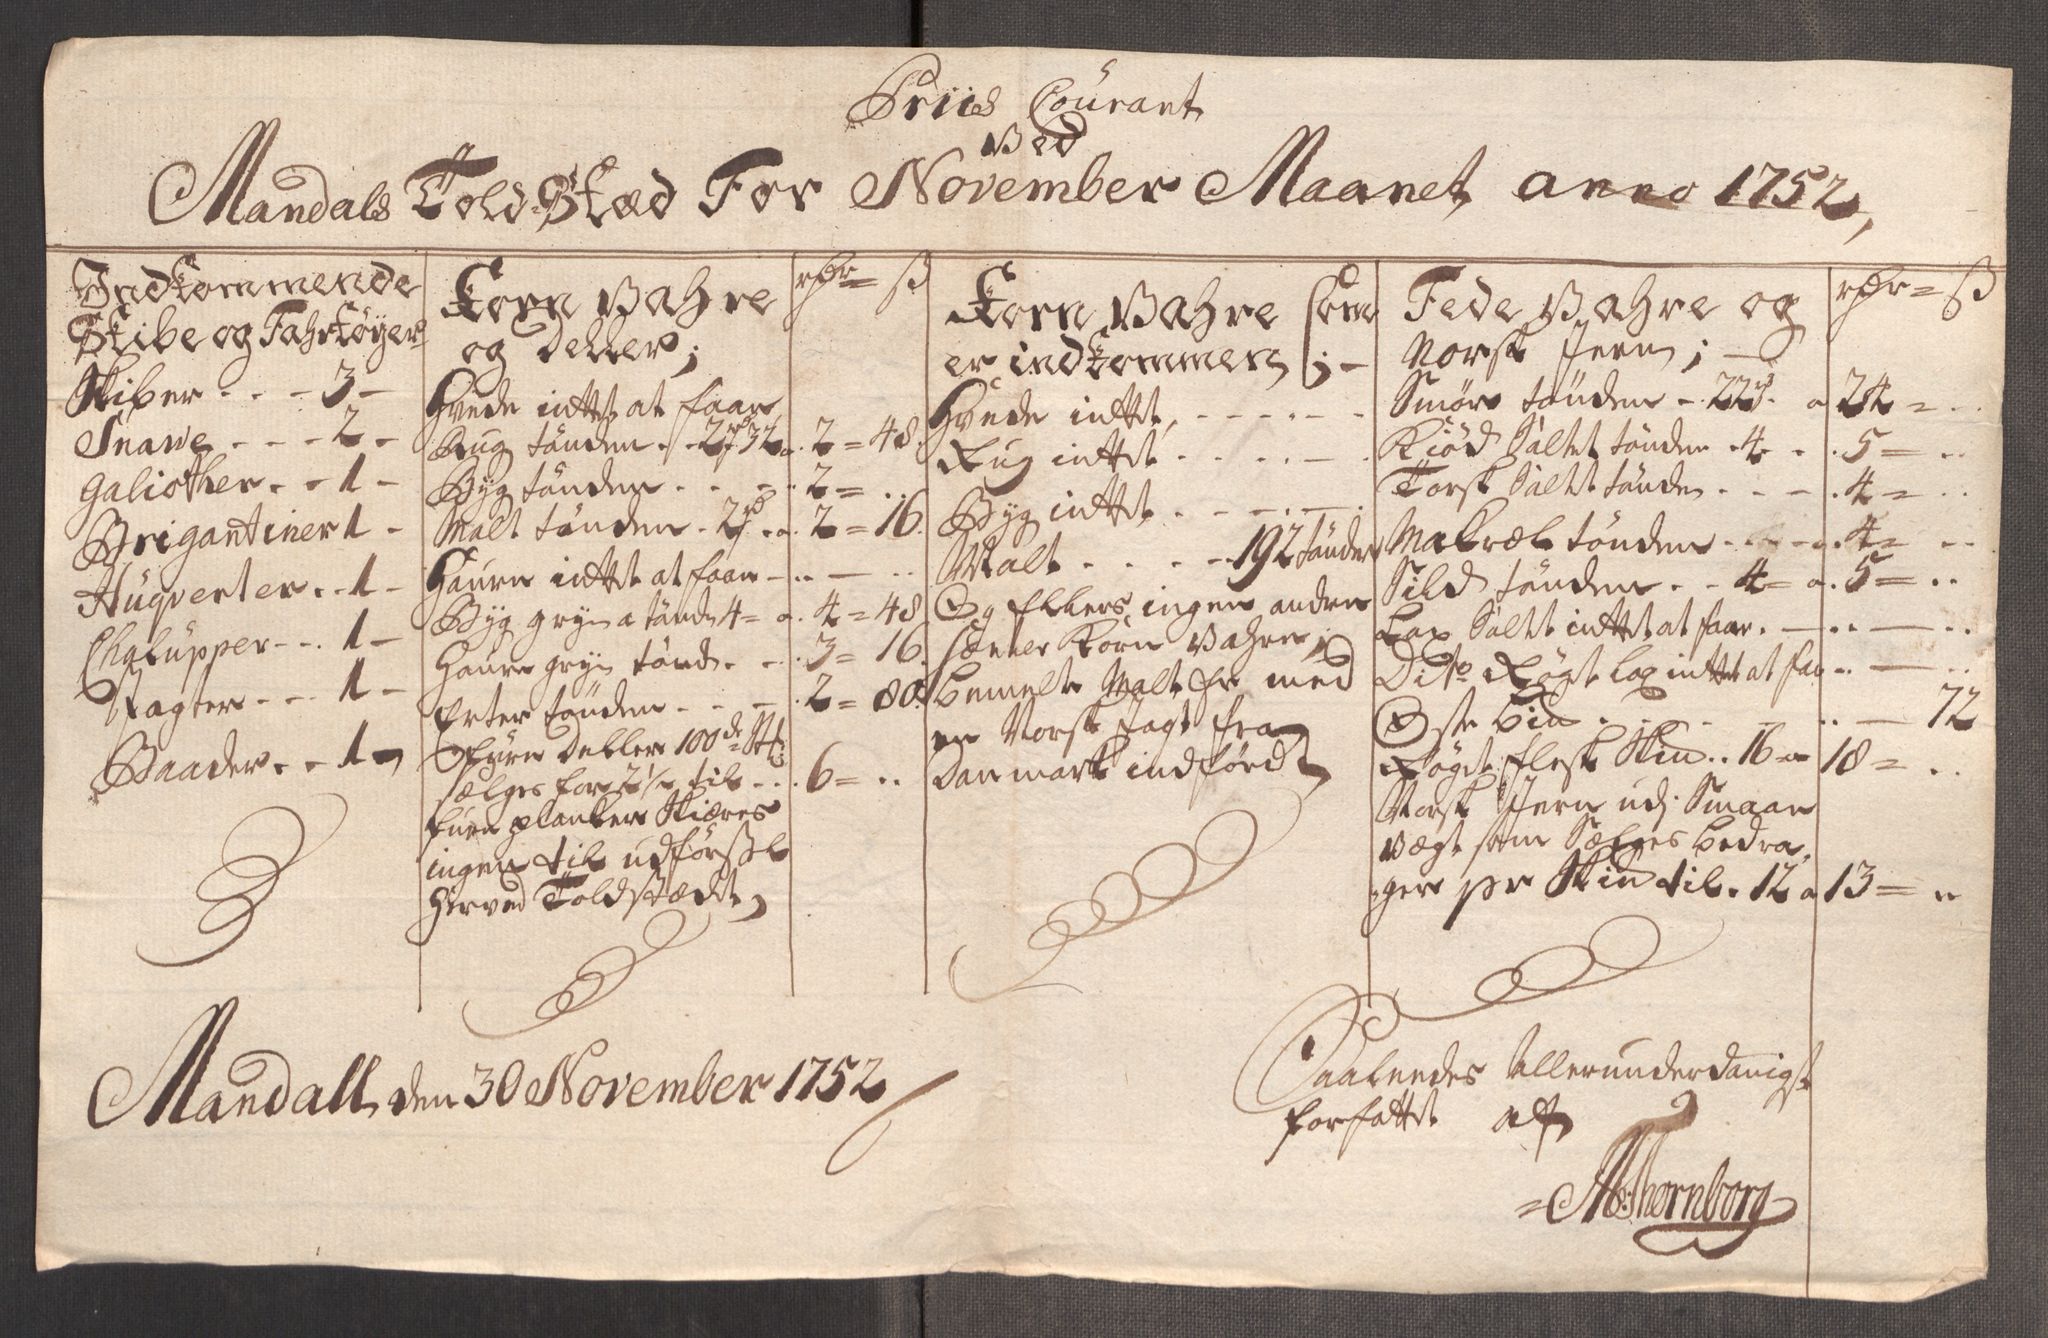 Priis Courant
Ved
Mandals Told-Stæd For November Maanet anno 1752,
Indkommende
Skibe og Fahrtøyer
Skiber . . . 3 –
Snawe . . . 2 –
Galiother . . 1 –
Brigantiner 1 –
Huqverter . . 1 –
Chalupper . . . 1 –
Jagter . . . 1 –
Baader . . 1 –
Korn Vahre
og Deller;
rdr = ß
Hvede intet at faae
Rug tönden . . 2 rd 32 a . 2 = 48.
Byg tönden . . . . . 2 = . .
Malt tönden . 2 rd . a . 2 = 16.
Haure intet at faae – . . — . .
Byg gryn a tönde 4 = a . 4 = 48
Haure gryn tönd . . . 3 = 16.
Erter tönden . . . . 2 = 80.
Furu Deller 100de St:
sælges for 2 1/2 til . . . 6 = . .
furu planker Skiæres
ingen til udförssel
herved Toldstædet,
Korn Vahre som
er indkommen ; –
Hvede intet, . . . . .
Rug intet . . . . .
Byg intet . . . . .
Malt . . . . . 192 tönder
Og Ellers ingen andre
slags Korn Vahre,
bemelte Malt er med
en Norsk Jagt fra
Danmark indförd
Fede Vahre og
Norsk Jern ; –
rdr = ß
Smör tönden . 22 rd . a 24 = . .
Kiöd Saltet tönden . 4 . . . 5 = . .
Torsk Saltet tönden . . . . 4 = . .
Makrel tönden . . . . . 4 = . .
Sild tönden . . 4 = a . 5 = . .
Lax Saltet intet at faae . — . . — . .
Dito Rögt lax intet at faae . . — . .
Oste bin . . . . . . . — 72
Rögt flesk Skin . . 16 a 18 = . .
Norsk Jern udj Smaae
vægt som Sælges bedra-
ger pr Skin til . 12 a 13 = . .
Mandall, den 30 November 1752
Saaledes Allerunderdanigst
forfattet af
Thornborg